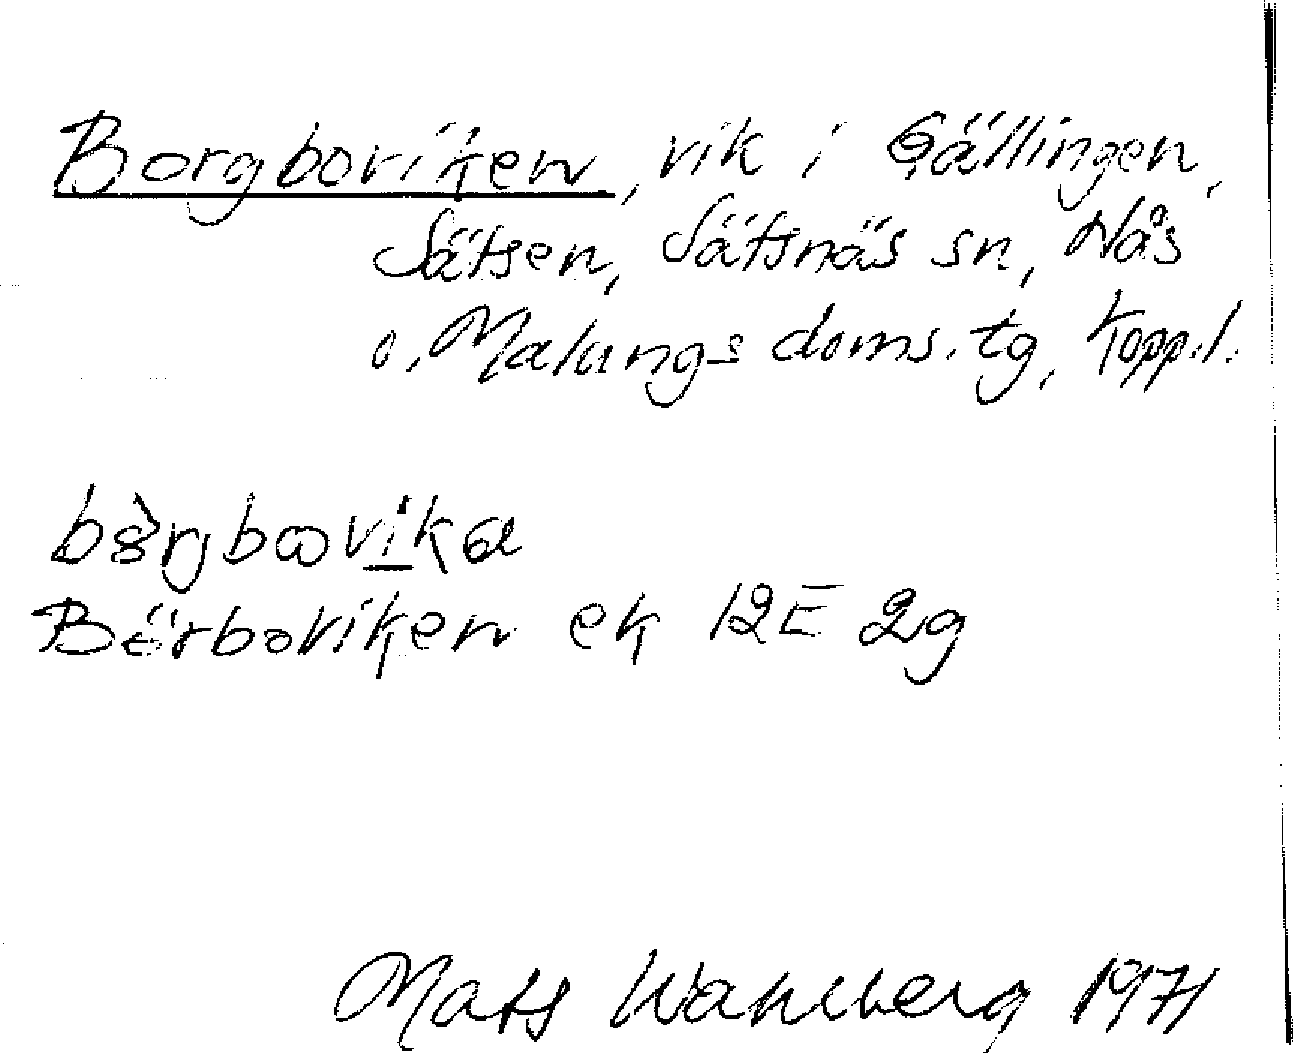 Borgboviken, vik i Gällingen,
Sätsen, Sätsnäs sn, Nås
o. Malungs doms. tg, Kopp. l.
Börboviken ek 12E 2g
Mats Wahlberg 1971